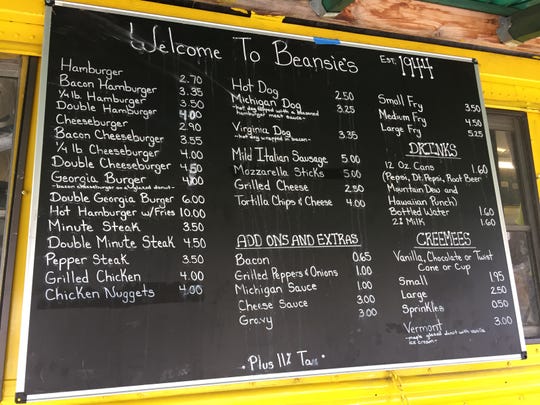 Welcome To Beansie's EST. 1944
Hamburger 2.70
Bacon Hamburger 3.35
1/4 lb. Hamburger 3.50
Double Hamburger 4.00
Cheeseburger 2.90
Bacon Cheeseburger 3.55
1/4 lb. Cheeseburger 4.00
Double Cheeseburger 4.50
Georgia Burger 4.00
-bacon cheeseburger on a glazed donut-
Double Georgia Burger 6.00
Hot Hamburger w/Fries 10.00
Minute Steak 3.50
Double Minute Steak 4.50
Pepper Steak 3.50
Grilled Chicken 4.00
Chicken Nuggets 4.00
Hot Dog 2.50
Michigan Dog 3.25
-hot dog topped with a seasoned
hamburger meat sauce-
Virginia Dog 3.35
-hot dog wrapped in bacon-
Mild Italian Sausage 5.00
Mozzarella Sticks 5.00
Grilled Cheese 2.50
Tortilla Chips & Cheese 4.00
ADD ONS AND EXTRAS
Bacon 0.65
Grilled Peppers & Onions 1.00
Michigan Sauce 1.00
Cheese Sauce 3.00
Gravy 3.00
• Plus 11% Tax •
Small Fry 3.50
Medium Fry 4.50
Large Fry 5.25
DRINKS
12 Oz. Cans 1.60
(Pepsi, Dt. Pepsi, Root Beer
Mountain Dew and
Hawaiian Punch)
Bottled Water 1.60
2% Milk 1.60
CREEMEES
Vanilla, Chocolate or Twist
Cone or Cup
Small 1.95
Large 2.50
Sprinkles 0.50
Vermont 3.00
-maple glazed donut with vanilla
ice cream-